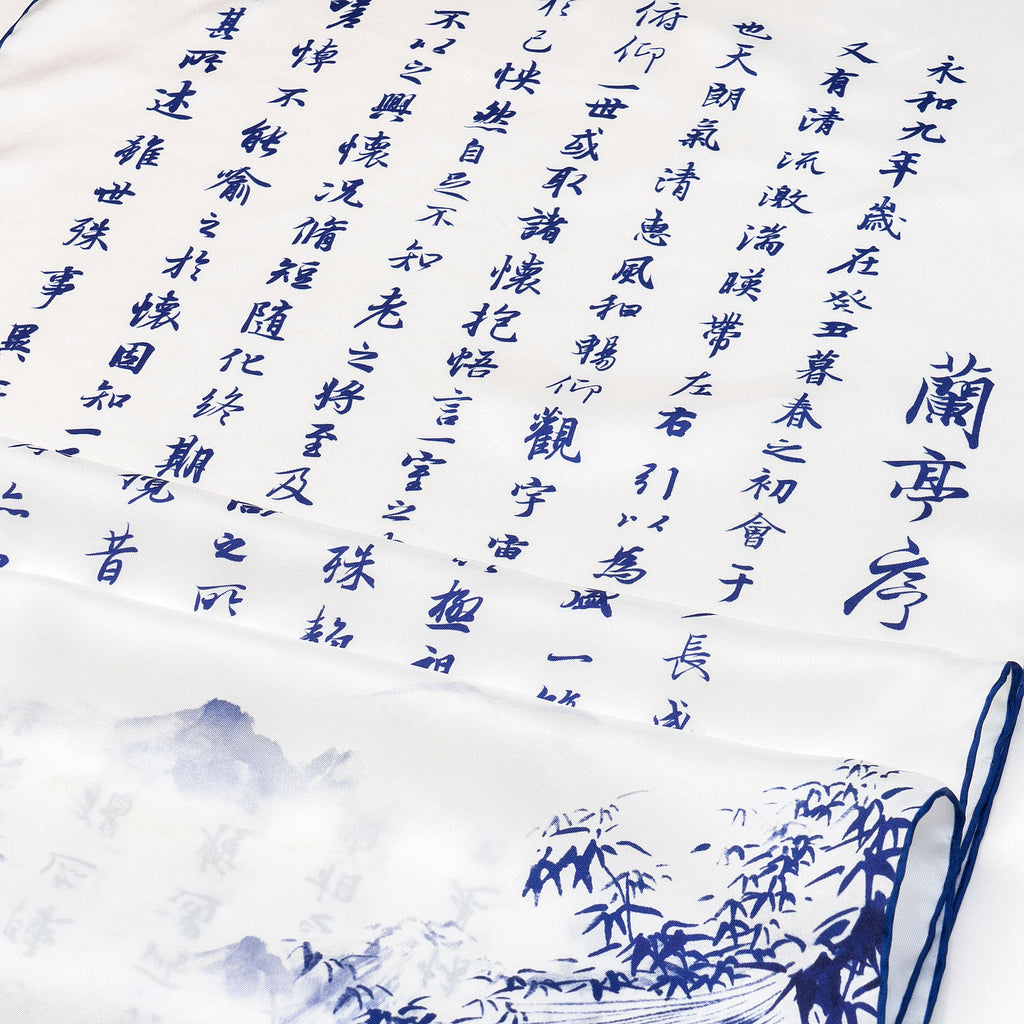 蘭亭序
永和九年歲在癸丑暮春之初會于
又有清流激湍暎帶左右引以為
也天朗氣清惠風和暢仰觀宇宙
俯仰一世或取諸懷抱悟言一室之
於己怏然自足不知老之將至及
不以之興懷况脩短隨化終期
嗟悼不能喻之於懷固知一
其所述雖世殊事異
長
盛一
極
殊
之所
昔